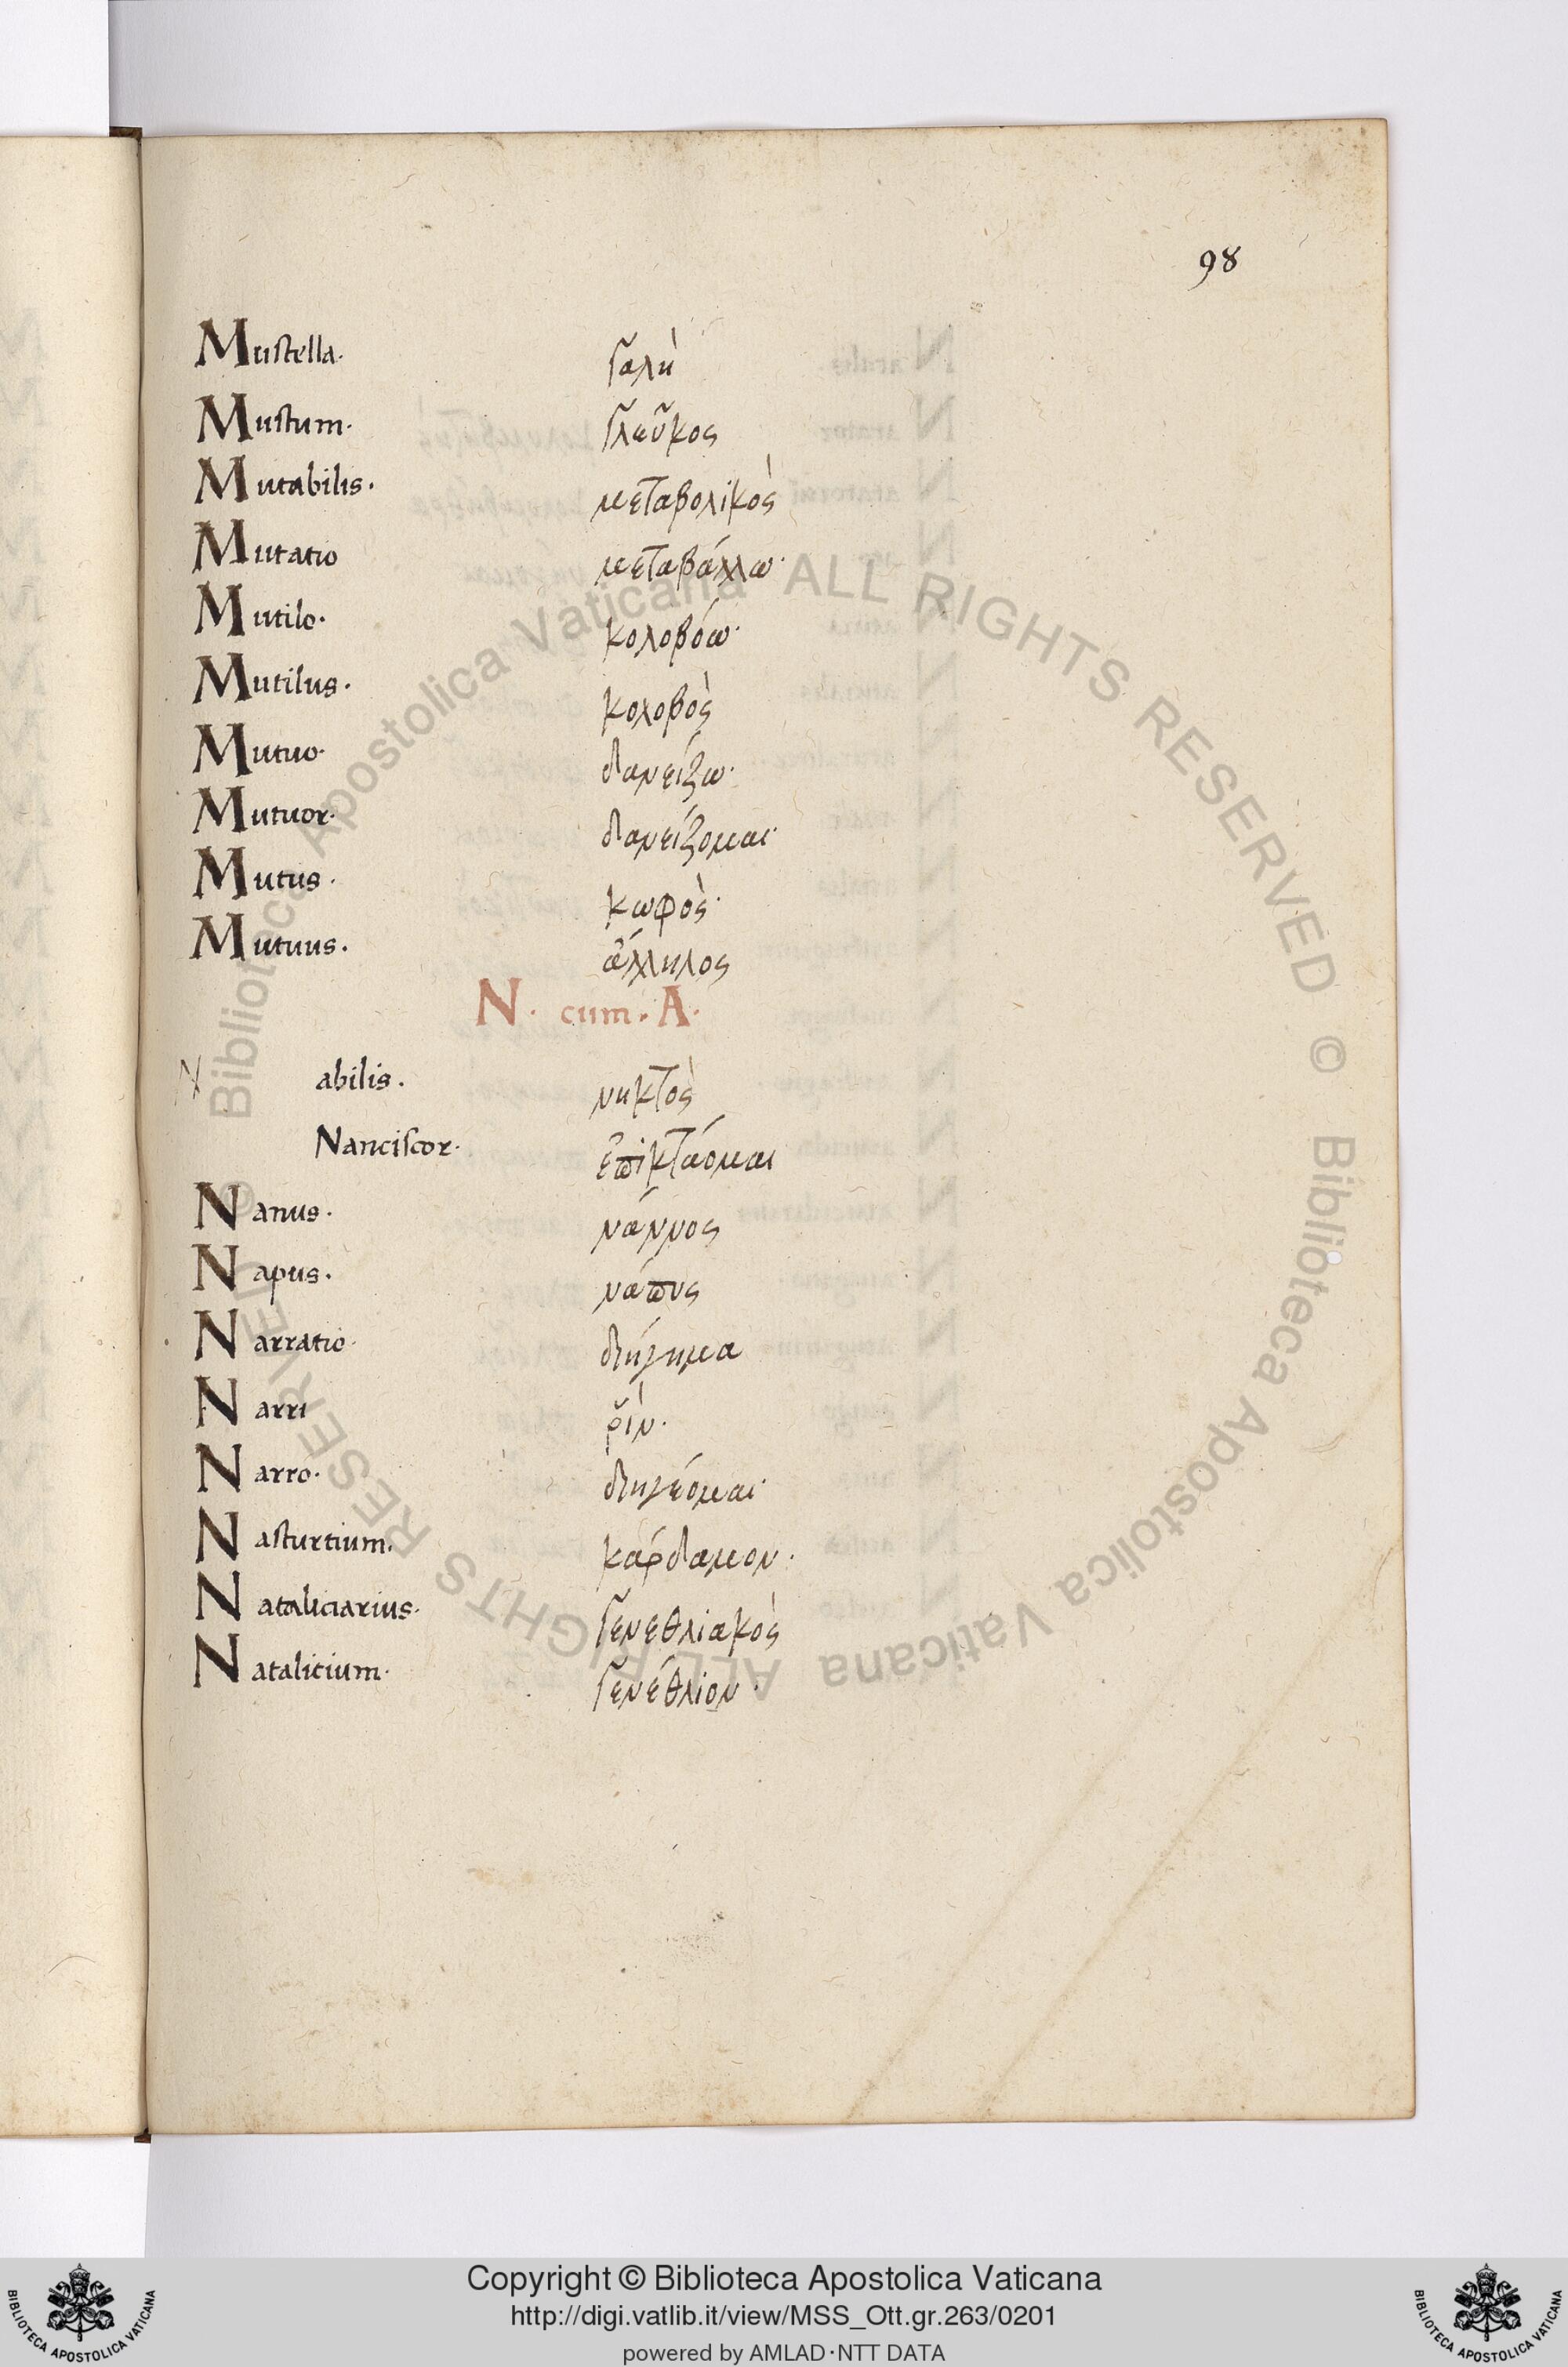 98
Mustella. γαλὴ
Mustum. γλεῦκος
Mutabilis. μεταβολικὸς
Mutatio μεταβάλλω.
Mutilo. κολοβόω.
Mutilus. κολοβὸς
Mutuo. δανείζω.
Mutuor. δανείζομαι.
Mutus. κωφὸς.
Mutuus. ἄλληλος
N. cum. A.
N abilis. νηκτὸς
Nanciscor. ἐπικτάομαι
Nanus. νάννος
Napus. νάπυς
Narratio. διήγημα
Narri ῥὶν.
Narro. διηγέομαι.
Nasturtium. κάρδαμον.
Nataliciarius. γενεθλιακὸς
Natalicium. γενέθλιον.
Biblioteca Apostolica Vaticana ALL RIGHTS RESERVED ©
Biblioteca Apostolica Vaticana ALL RIGHTS RESERVED ©
Copyright © Biblioteca Apostolica Vaticana
http://digi.vatlib.it/view/MSS_Ott.gr.263/0201
powered by AMLAD·NTT DATA
BIBLIOTECA APOSTOLICA VATICANA
BIBLIOTECA APOSTOLICA VATICANA